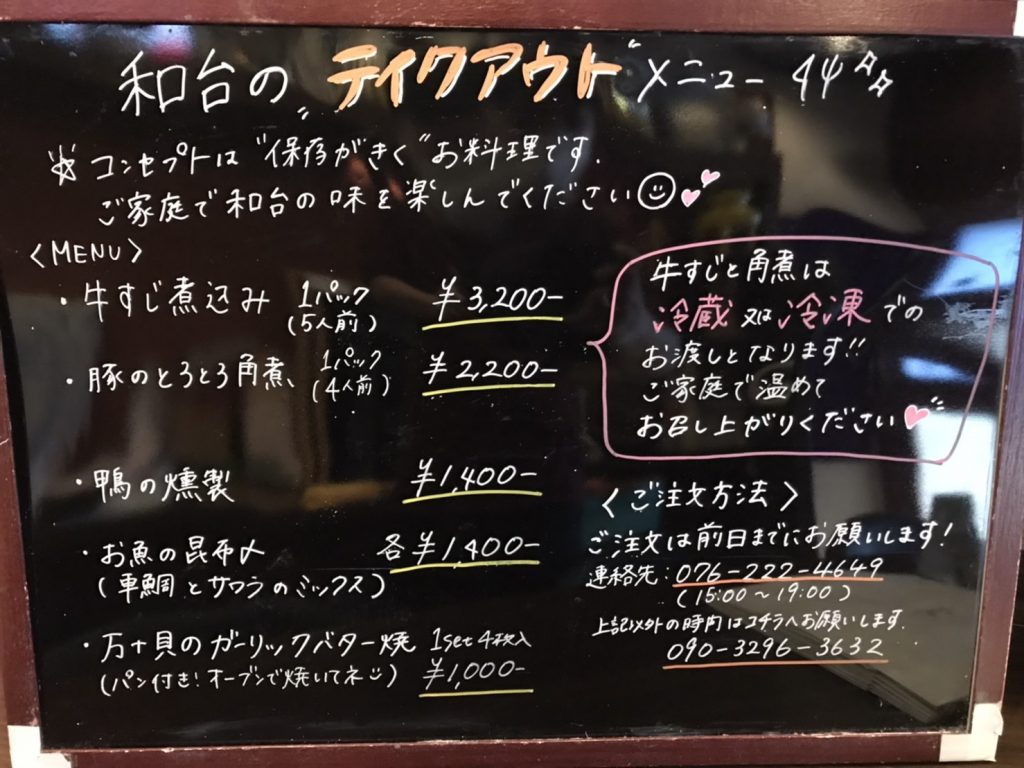 和台の "テイクアウト" メニュー
☆ コンセプトは "保存がきく" お料理です.
ご家庭で和台の味を楽しんでください
〈MENU〉
・牛すじ煮込み 1パック (5人前) ¥3,200-
・豚のとろとろ角煮、 1パック (4人前) ¥2,200-
・鴨の燻製 ¥1,400-
・お魚の昆布〆 各¥1,400-
(車鯛とサワラのミックス)
・万十貝のガーリックバター焼 1set 4枚入
(パン付き! オーブンで焼いてネ) ¥1,000-
牛すじと角煮は
冷蔵又は冷凍での
お渡しとなります!!
ご家庭で温めて
お召し上がりください
〈ご注文方法〉
ご注文は前日までにお願いします!
連絡先:076-222-4649
(15:00～19:00)
上記以外の時間はコチラへお願いします.
090-3296-3632